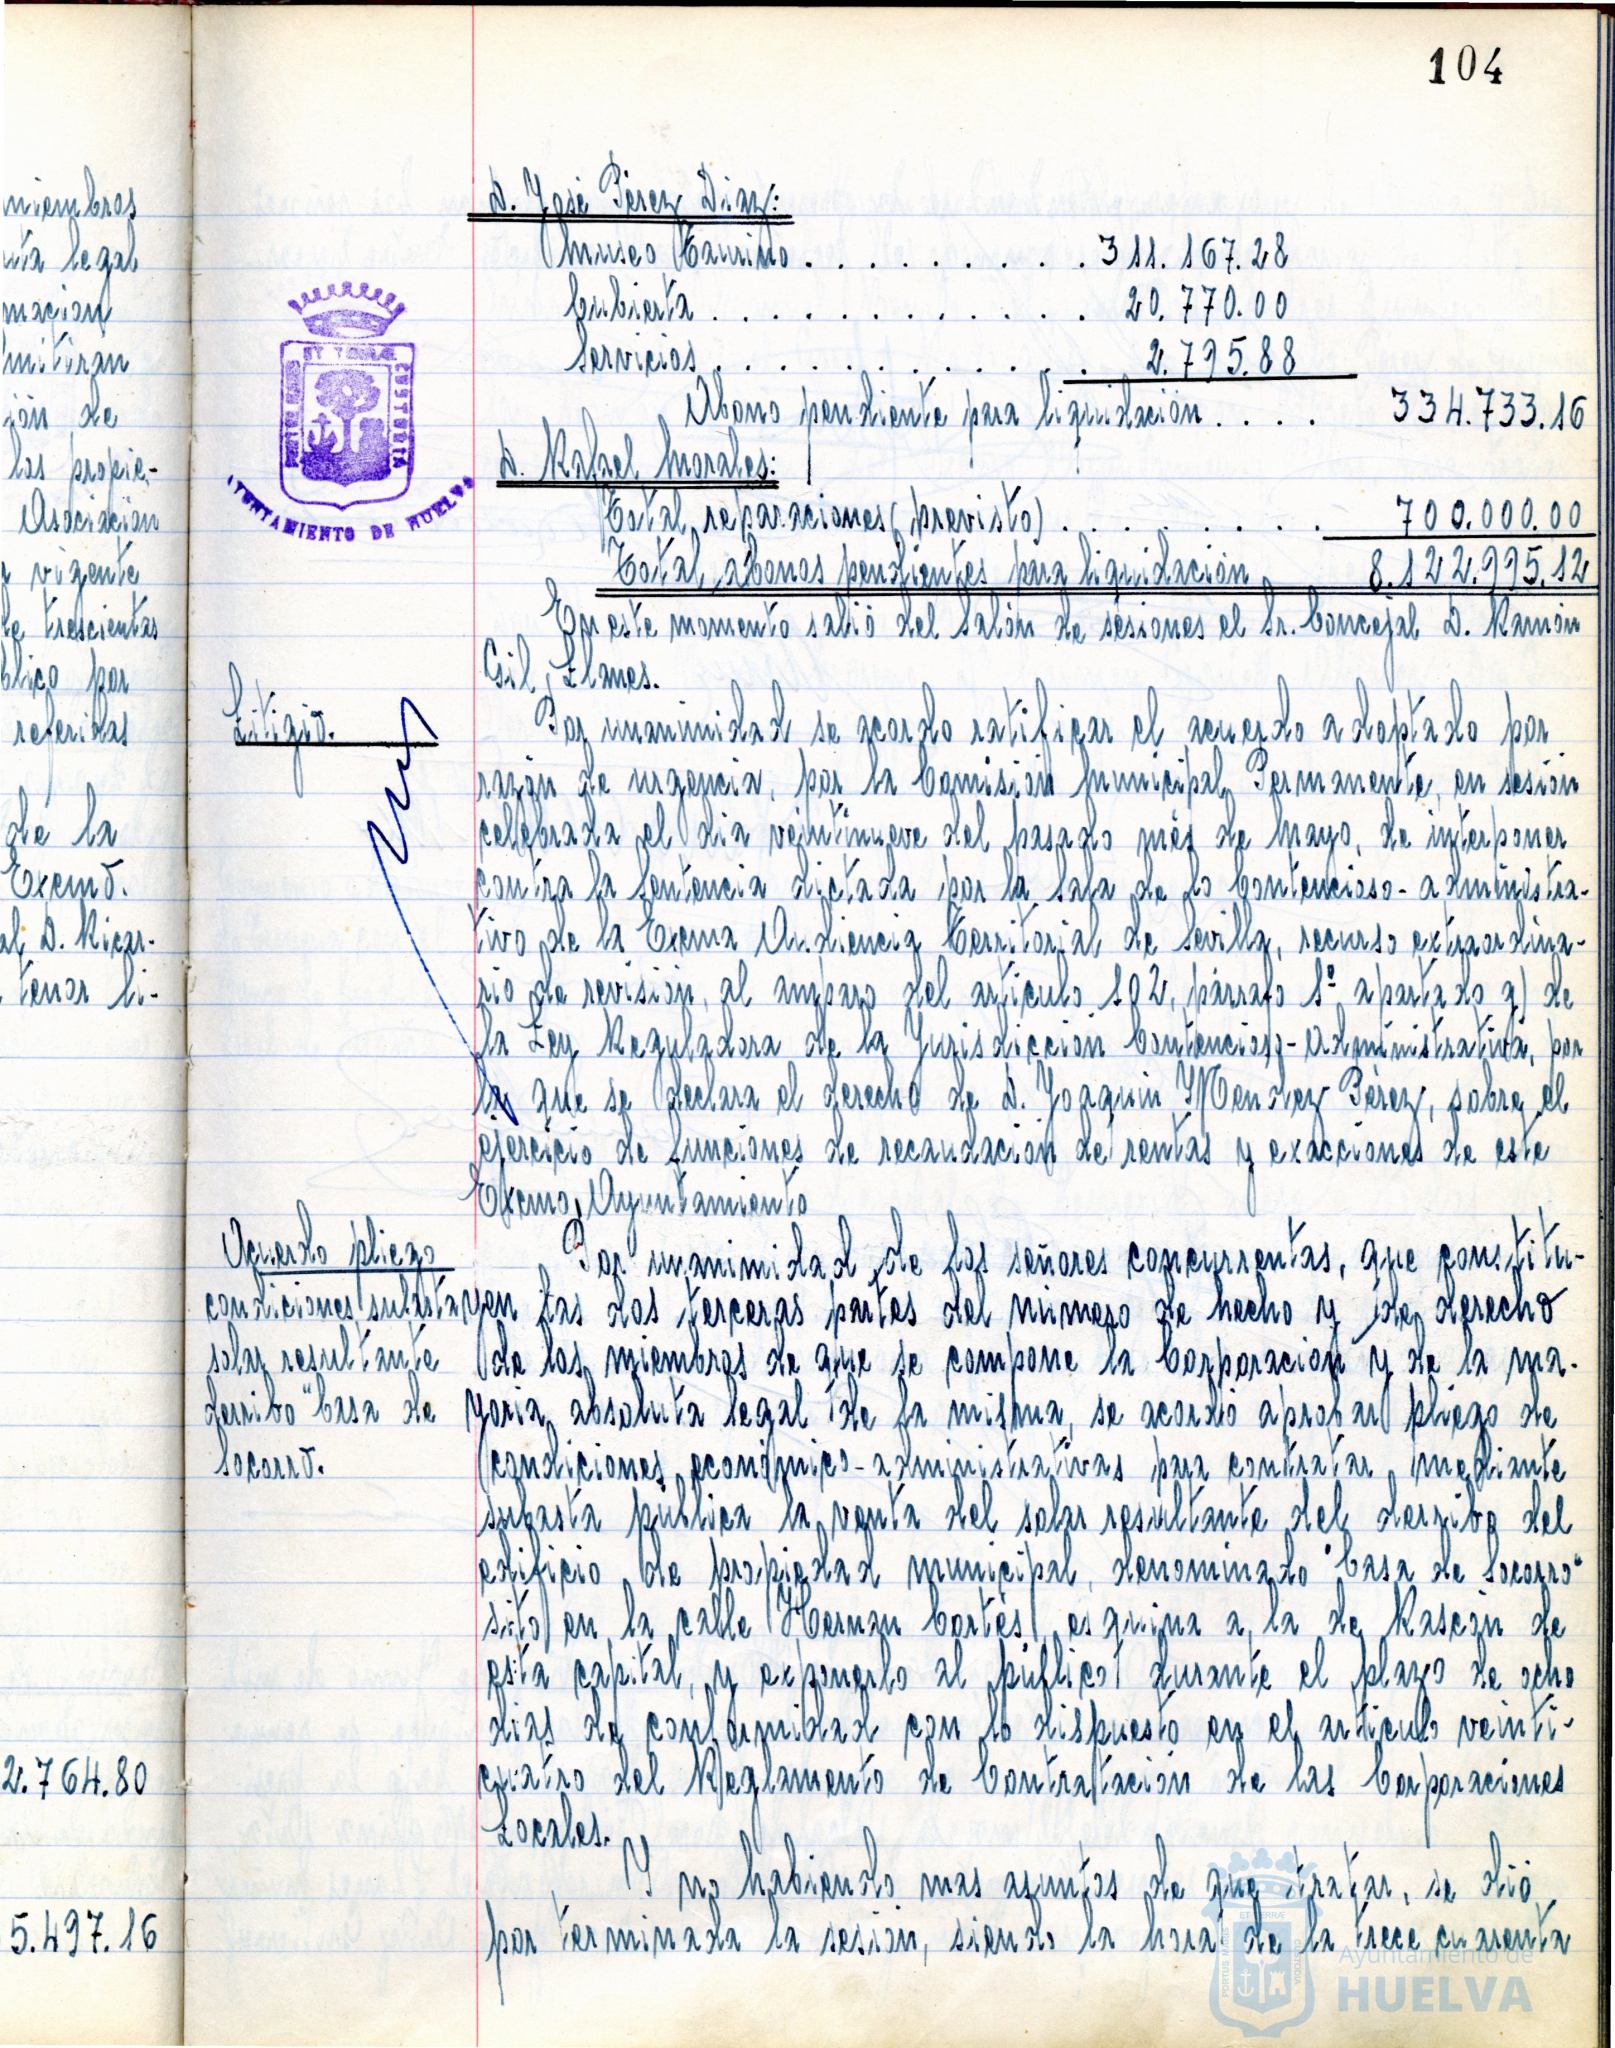 104
miembros
legal
mitirán
ión de
los propie-
Asociación
vigente
de trescientas
blico por
referidas
de la
Excmo.
al D. Ricar-
tenor li-
2.764.80
5.497.16
D. José Pérez Diaz:
Museo Taurino . . . . . . . . . . 311.167.28
Cubierta . . . . . . . . . . . . 20.770.00
Servicios . . . . . . . . . . . . 2.795.88
Abono pendiente para liquidación . . . . 334.733.16
D. Rafael Morales:
Total reparaciones (previsto) . . . . . . . . 700.000.00
Total abonos pendientes para liquidación 8.122.995.12
En este momento salió del Salón de sesiones el Sr. Concejal D. Ramón
Gil Llanes.
Litigio.
Por unanimidad se acordo ratificar el acuerdo adoptado por
razón de urgencia, por la Comisión Municipal Permanente, en sesión
celebrada el dia veintinueve del pasado mes de Mayo, de interponer
contra la Sentencia dictada por la Sala de lo Contencioso-administra-
tivo de la Excma Audiencia Territorial de Sevilla, recurso extraordina-
rio de revisión, al amparo del articulo 102, párrafo 1º apartado g) de
la Ley Reguladora de la Jurisdicción Contencioso-Administrativa, por
la que se declara el derecho de D. Joaquin Mendez Pérez, sobre el
ejercicio de funciones de recaudación de rentas y exacciones de este
Excmo, Ayuntamiento
Acuerdo pliego
condiciones subasta
solar resultante
derribo "Casa de
Socorro.
Por unanimidad de los señores concurrentas, que constitu-
yen las dos terceras partes del número de hecho y de derecho
de los miembros de que se compone la Corporación y de la ma-
yoria absoluta legal de la misma, se acordó aprobar pliego de
condiciones económico-administrativas para contratar mediante
subasta publica la venta del solar resultante del derribo del
edificio de propiedad municipal, denominado "Casa de Socorro"
sito en la calle Hernan Cortés, esquina a la de Rascón de
esta capital, y exponerlo al publico durante el plazo de ocho
dias de conformidad con lo dispuesto en el articulo veinti-
cuatro del Reglamento de Contratación de las Corporaciones
Locales.
Y no habiendo mas asuntos de que tratar, se dió
por terminada la sesión, siendo la hora de la trece cuarenta
AYUNTAMIENTO DE HUELVA
Ayuntamiento de
HUELVA